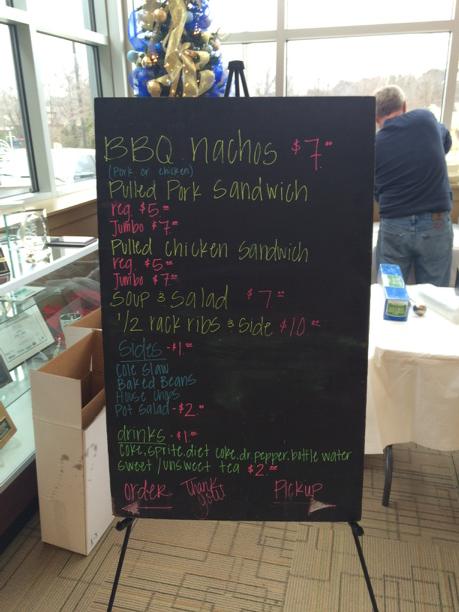 BBQ nachos $7.00
(Pork or chicken)
Pulled Pork Sandwich
reg. $5.00
Jumbo $7.00
Pulled Chicken Sandwich
reg. $5.00
Jumbo $7.00
Soup & Salad $7.00
1/2 rack ribs & Side $10.00
Sides - $1.00
Cole Slaw
Baked Beans
House Chips
Pot Salad - $2.00
drinks - $1.00
Coke, sprite, diet coke, dr. pepper, bottle water
sweet/unsweet tea $2.00
Order Thank you! Pickup